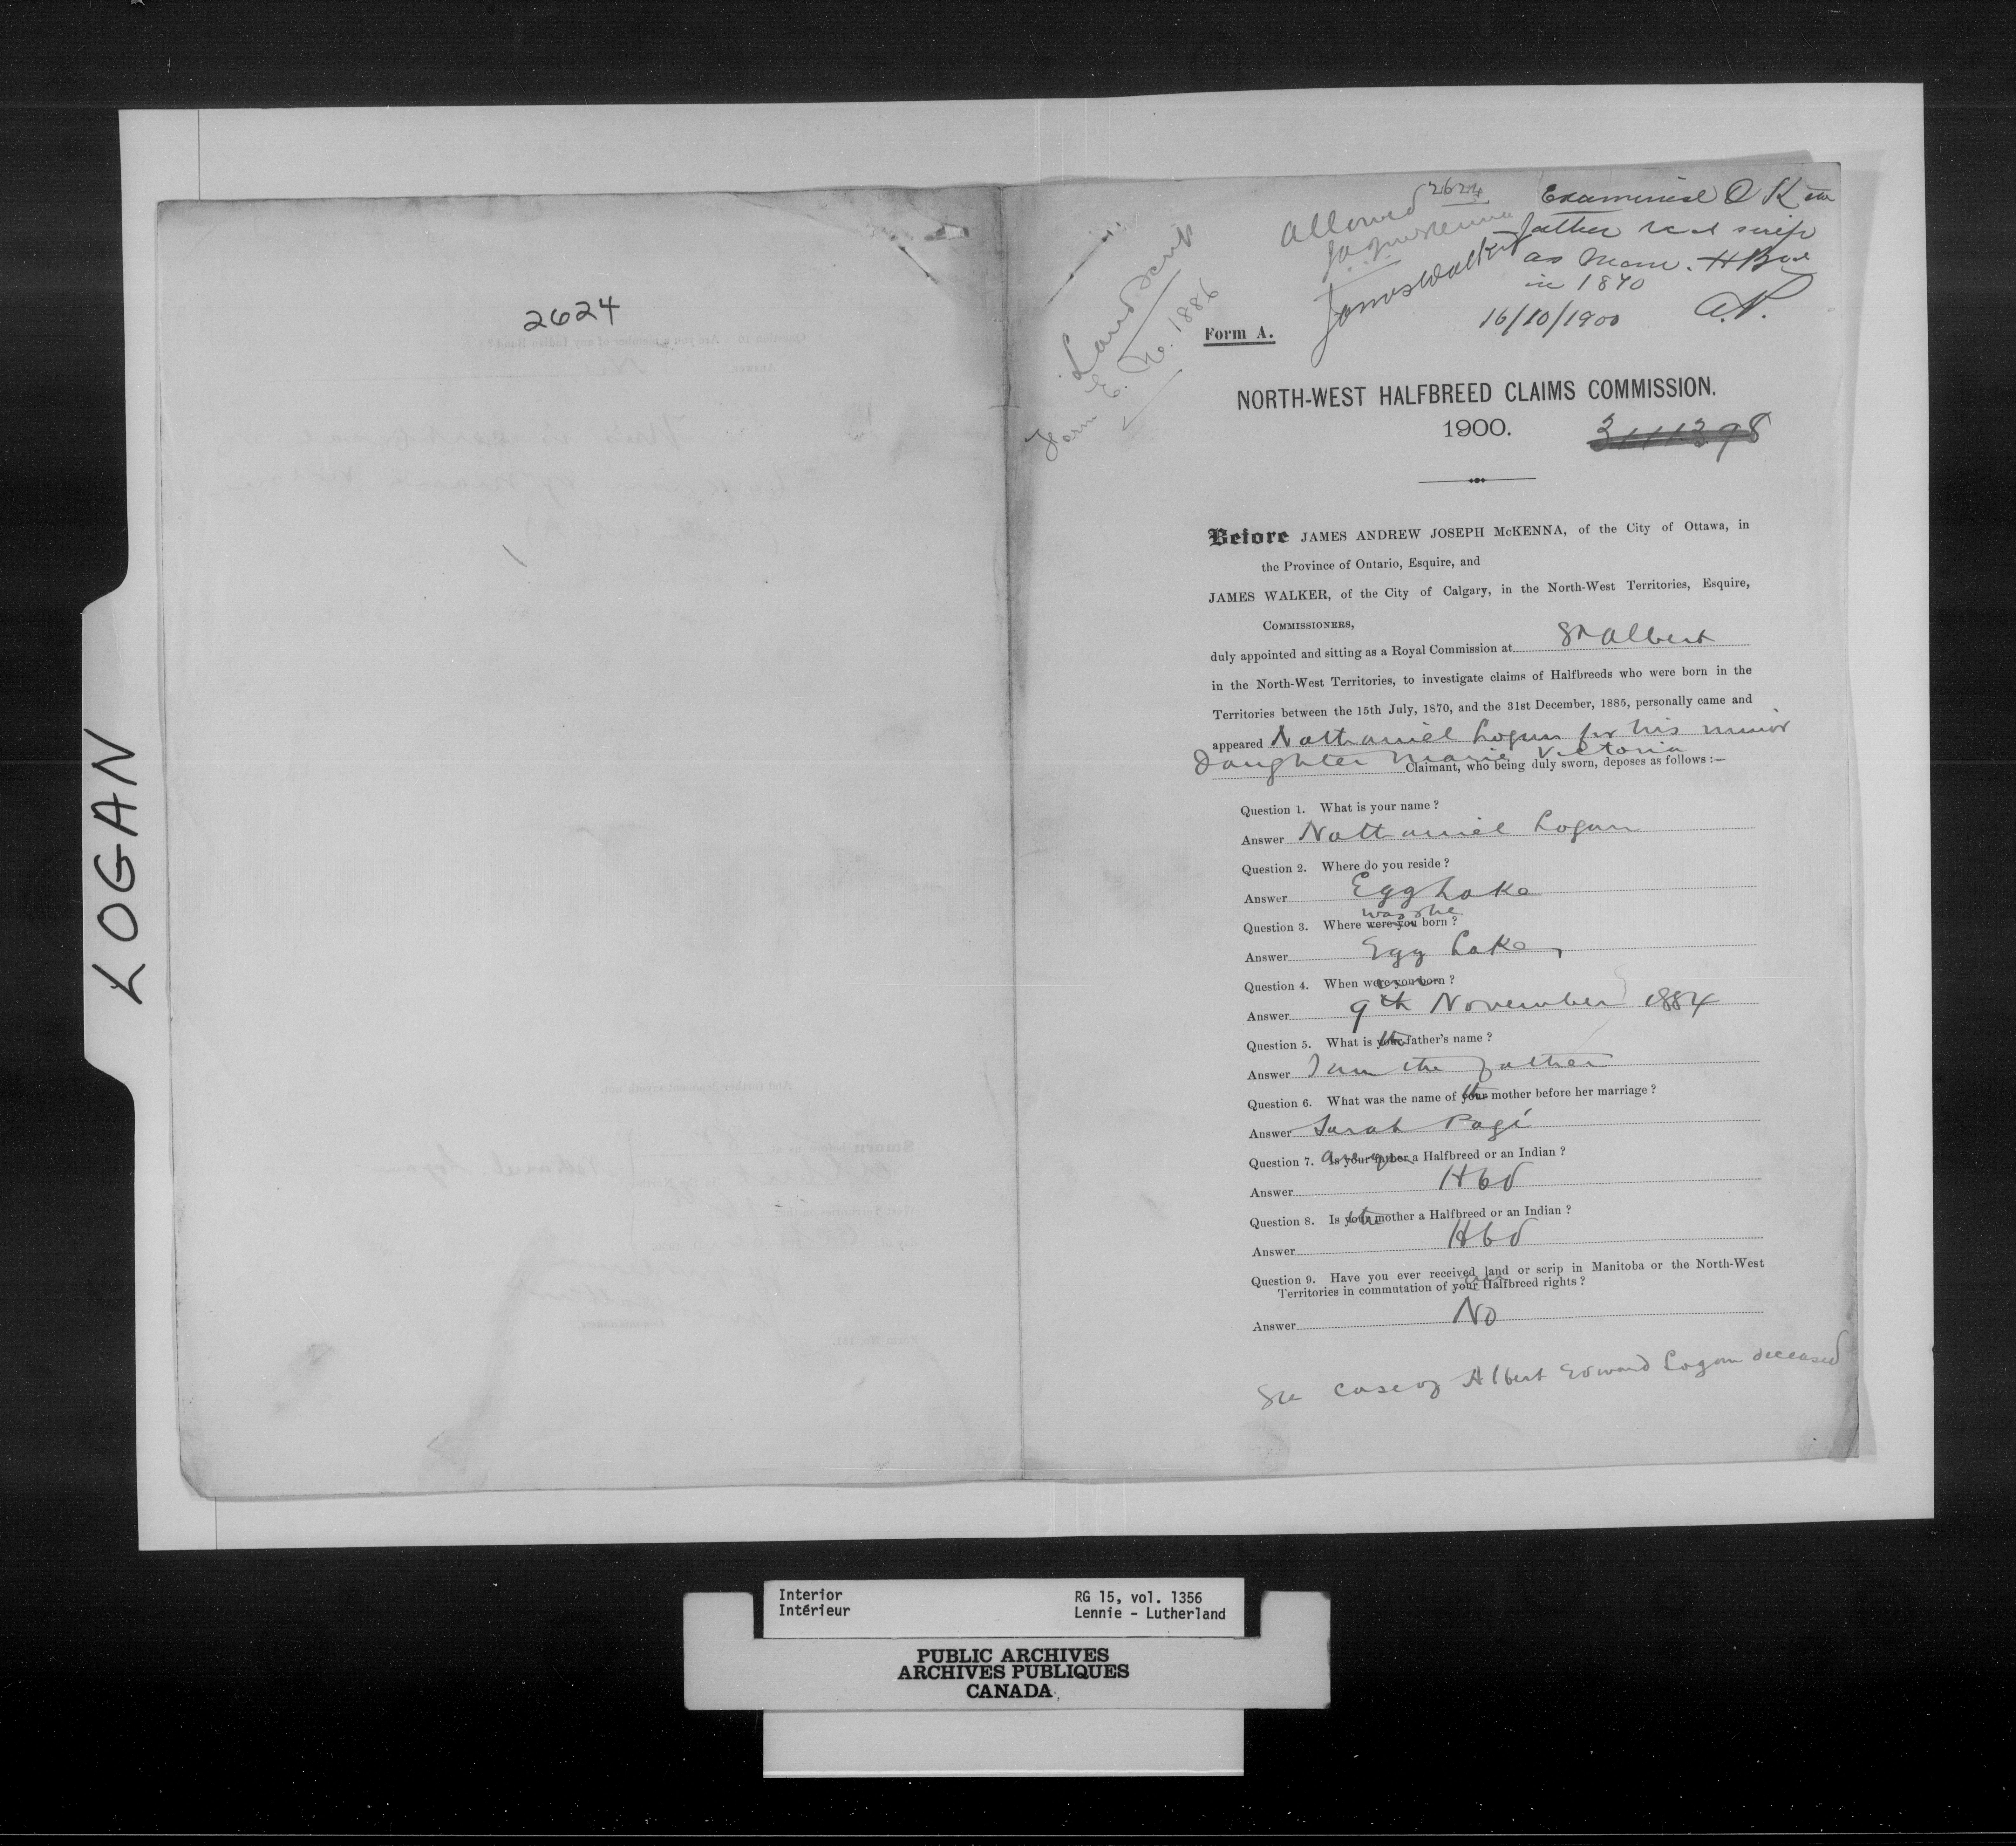 LOGAN
2624
Land Scrip
Form E. No. 1886
Allowed 2624
JAJ McKenna
James Walker
Examined OK
father recd scrip
as Man. HBrd
in 1870
16/10/1900
A.N.
Form A.
NORTH-WEST HALFBREED CLAIMS COMMISSION.
1900.
Before JAMES ANDREW JOSEPH McKENNA, of the City of Ottawa, in
the Province of Ontario, Esquire, and
JAMES WALKER, of the City of Calgary, in the North-West Territories, Esquire,
COMMISSIONERS,
duly appointed and sitting as a Royal Commission at St Albert
in the North-West Territories, to investigate claims of Halfbreeds who were born in the
Territories between the 15th July, 1870, and the 31st December, 1885, personally came and
appeared Nathaniel Logan for his minor
daughter Marie Victoria
Claimant, who being duly sworn, deposes as follows :—
Question 1. What is your name ?
Answer Nathaniel Logan
Question 2. Where do you reside ?
Answer Egg Lake
was she
Question 3. Where were you born ?
Answer Egg Lake
Question 4. When were you born ?
Answer 9th November 1884
Question 5. What is your the father's name ?
Answer I am the father
Question 6. What was the name of your the mother before her marriage ?
Answer Sarah Pagé
Question 7. Is your father are you a Halfbreed or an Indian ?
Answer Hbd
Question 8. Is your the mother a Halfbreed or an Indian ?
Answer Hbd
Question 9. Have you ever received land or scrip in Manitoba or the North-West
Territories in commutation of your Halfbreed rights ?
Answer No
See case of Albert Edward Logan deceased
Interior
Intérieur
RG 15, vol. 1356
Lennie - Lutherland
PUBLIC ARCHIVES
ARCHIVES PUBLIQUES
CANADA